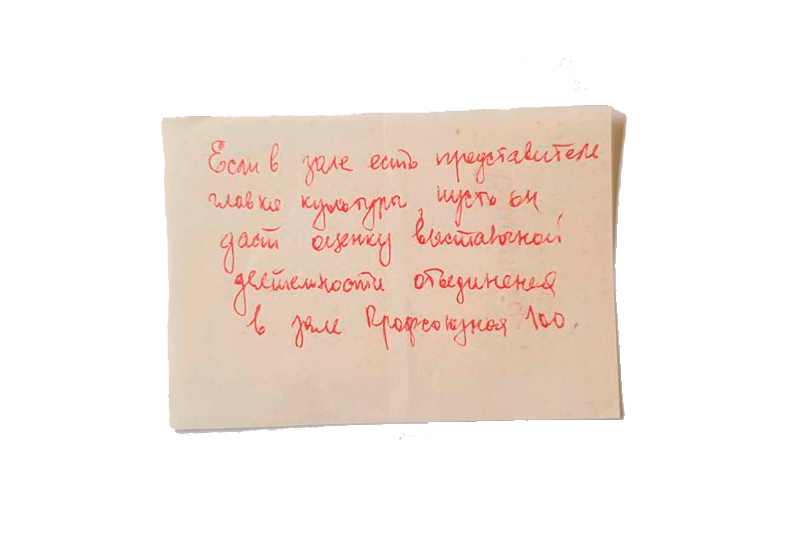 Если в зале есть представители
главка культуры, пусть он
даст оценку выставочной
деятельности объединения
в зале Профсоюзная 100.